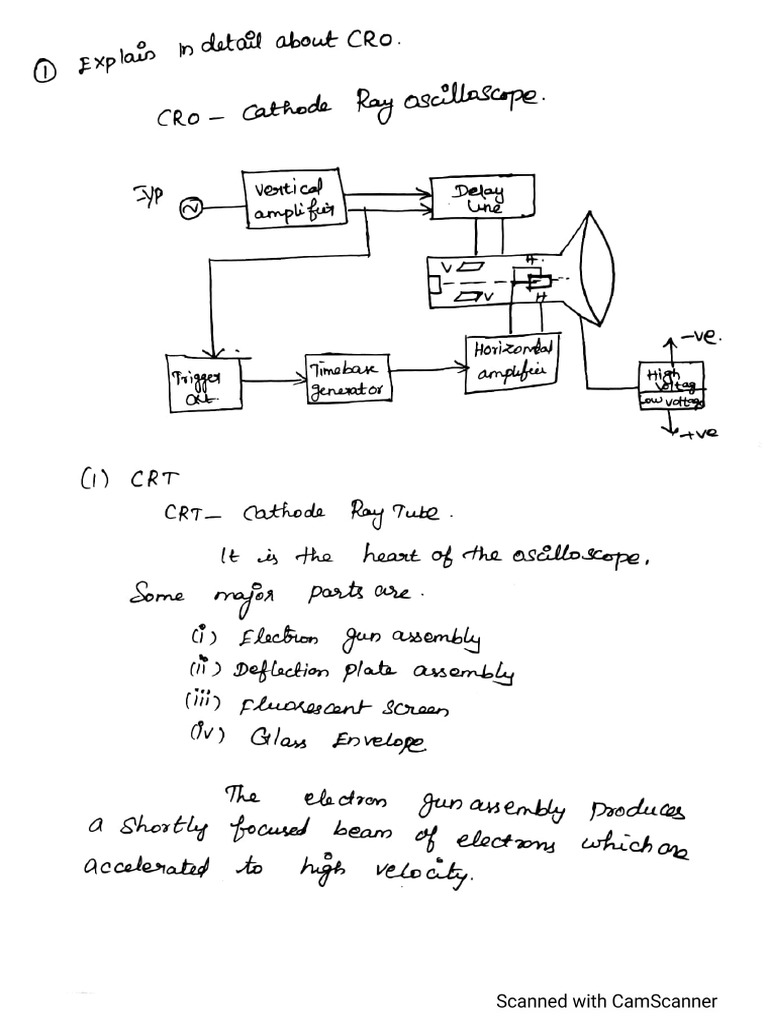 ① Explain in detail about CRO.
CRO – Cathode Ray oscilloscope.
I/P
Vertical
amplifier
Delay
Line
V
H
V
H
Trigger
ckt.
Timebase
generator
Horizontal
amplifier
-ve.
High
voltage
Low voltage
+ve
(1) CRT
CRT – Cathode Ray Tube.
It is the heart of the oscilloscope.
Some major parts are.
(i) Electron gun assembly
(ii) Deflection plate assembly
(iii) Fluorescent screen
(iv) Glass Envelope
The electron gun assembly produces
a shortly focused beam of electrons which are
accelerated to high velocity.
Scanned with CamScanner